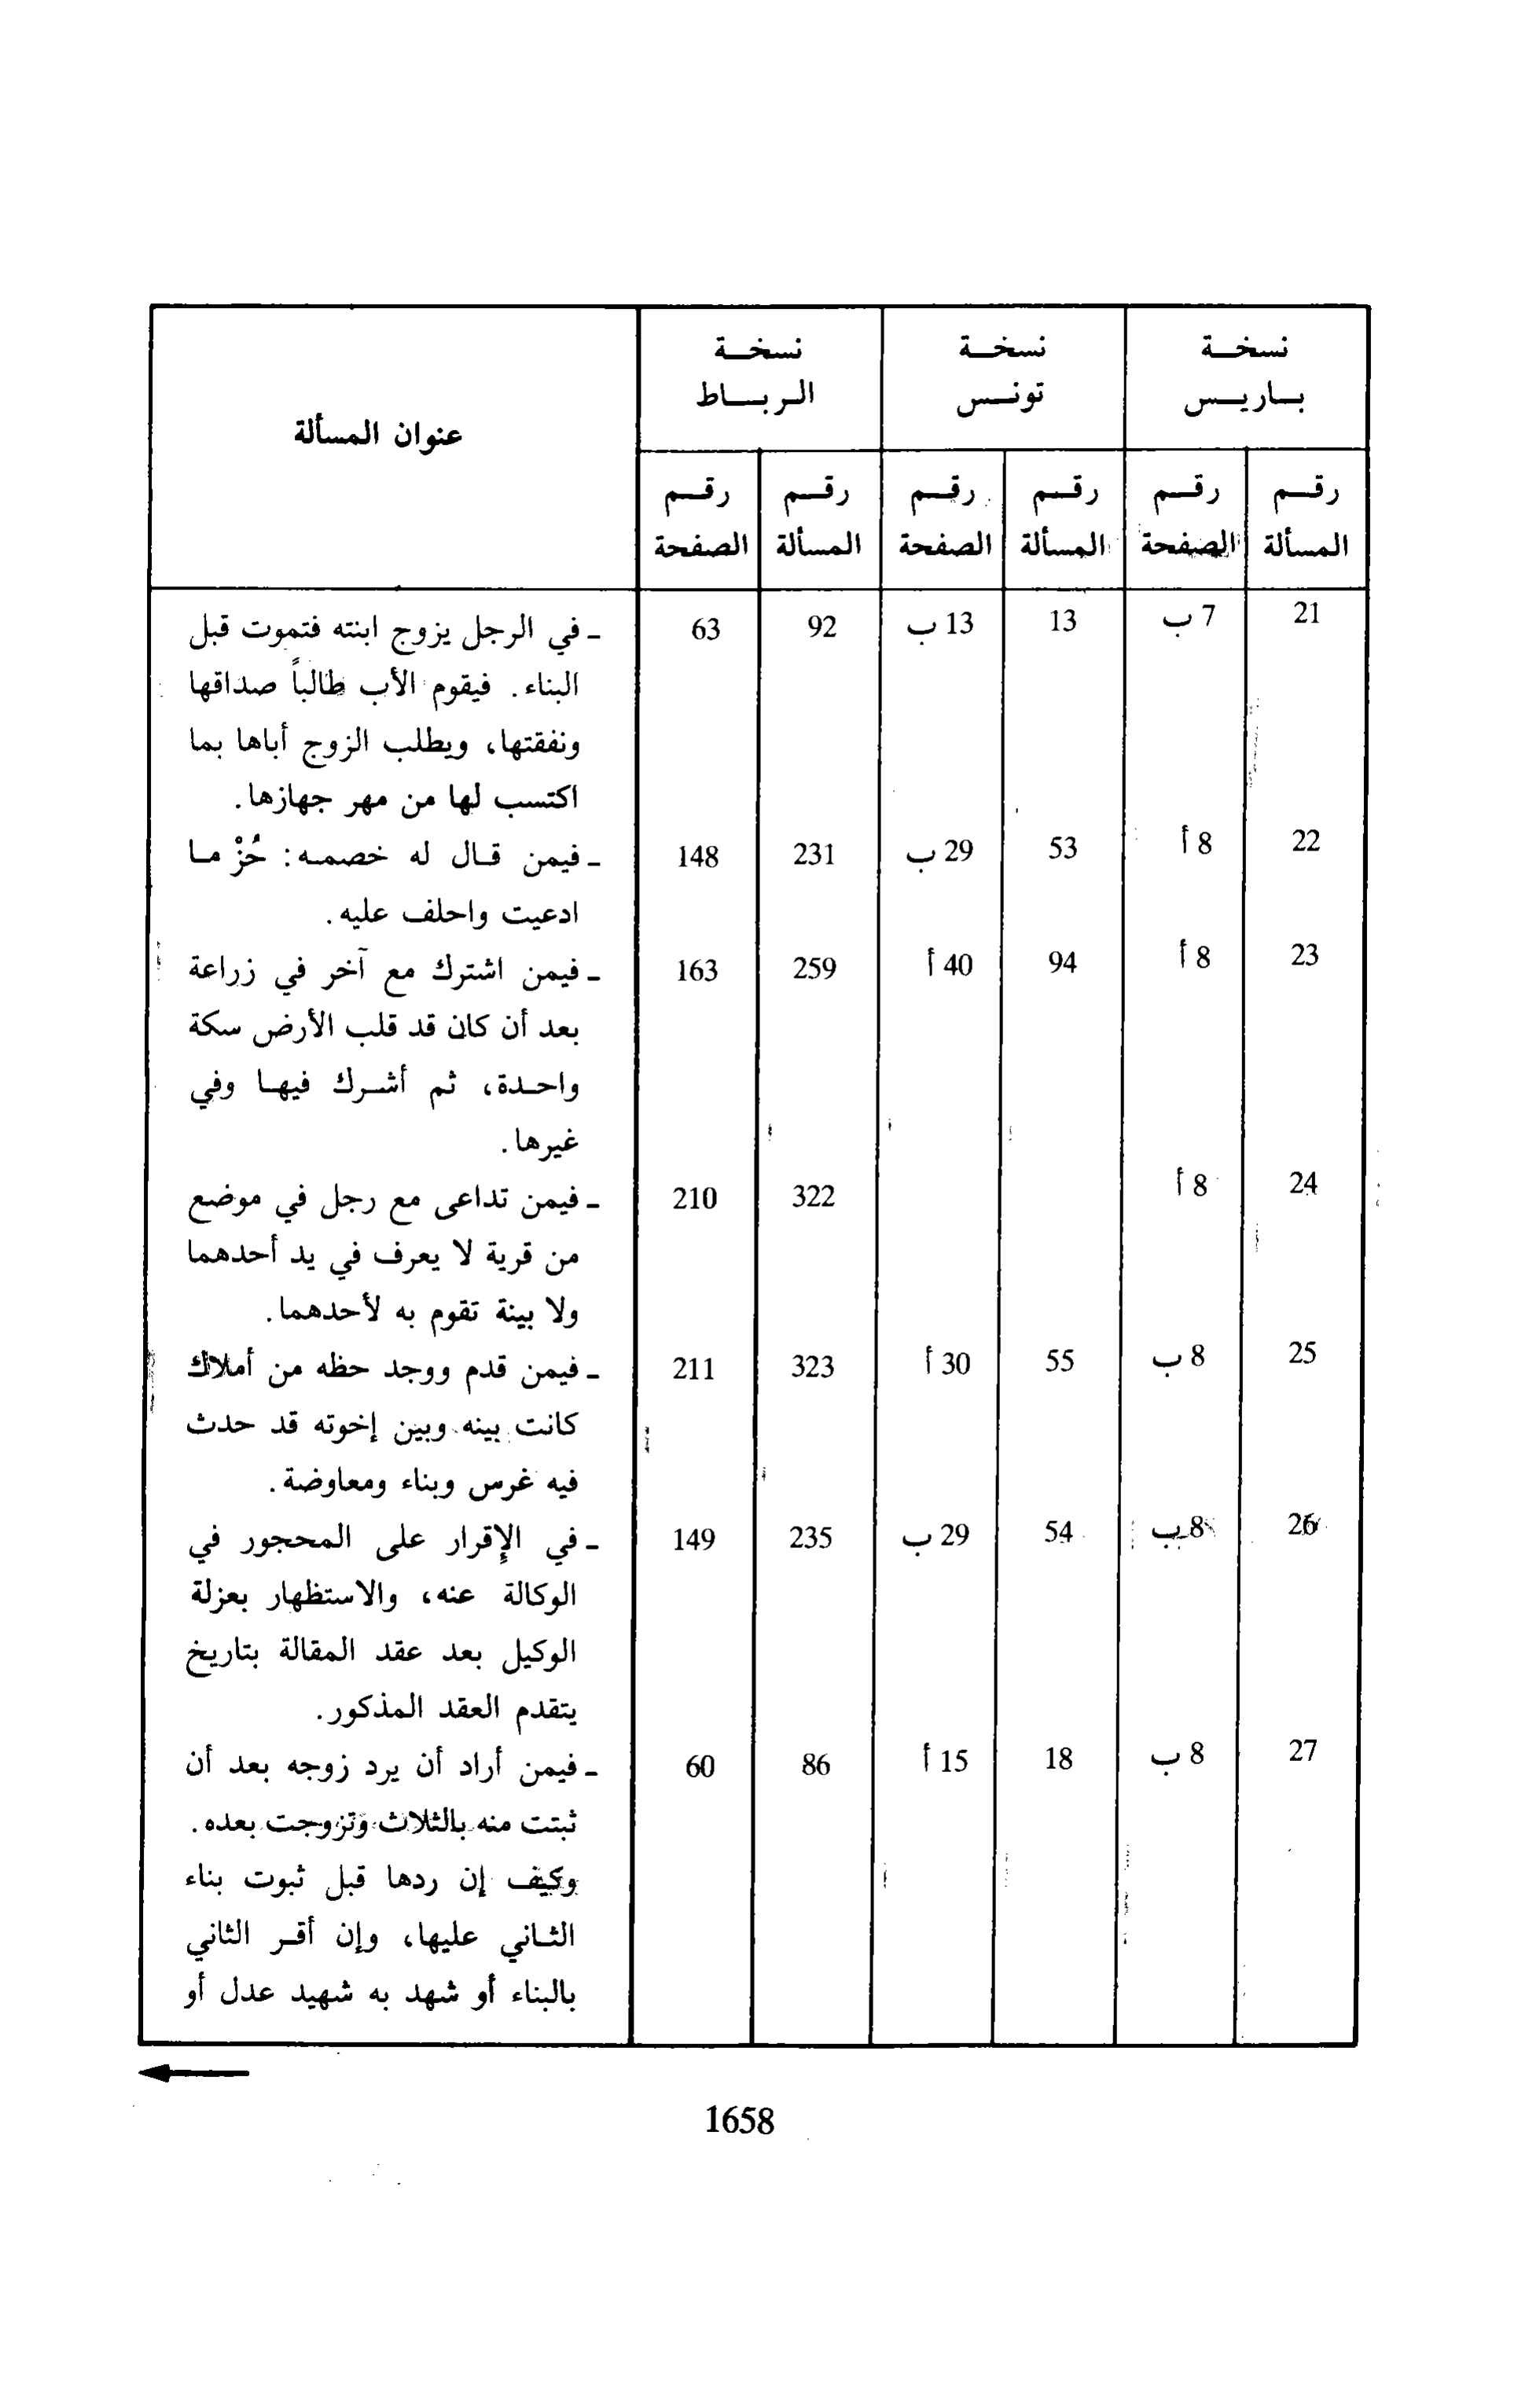 نسخة نسخة نسخة
باريس تونس الرباط
عنوان المسألة
رقم رقم رقم رقم رقم رقم
المسألة الصفحة المسألة الصفحة المسألة الصفحة
21 7 ب 13 13 ب 92 63 - في الرجل يزوج ابنته فتموت قبل
البناء. فيقوم الأب طالباً صداقها
ونفقتها، ويطلب الزوج أباها بما
اكتسب لها من مهر جهازها.
22 8 أ 53 29 ب 231 148 - فيمن قال له خصمه: حُزْ ما
ادعيت واحلف عليه.
23 8 أ 94 40 أ 259 163 - فيمن اشترك مع آخر في زراعة
بعد أن كان قد قلب الأرض سكة
واحدة، ثم أشرك فيها وفي
غيرها.
24 8 أ 322 210 - فيمن تداعى مع رجل في موضع
من قرية لا يعرف في يد أحدهما
ولا بينة تقوم به لأحدهما.
25 8 ب 55 30 أ 323 211 - فيمن قدم ووجد حظه من أملاك
كانت بينه وبين إخوته قد حدث
فيه غرس وبناء ومعاوضة.
26 8 ب 54 29 ب 235 149 - في الإقرار على المحجور في
الوكالة عنه، والاستظهار بعزلة
الوكيل بعد عقد المقالة بتاريخ
يتقدم العقد المذكور.
27 8 ب 18 15 أ 86 60 - فيمن أراد أن يرد زوجه بعد أن
ثبتت منه بالثلاث وتزوجت بعده.
وكيف إن ردها قبل ثبوت بناء
الثاني عليها، وإن أقر الثاني
بالبناء أو شهد به شهيد عدل أو
1658